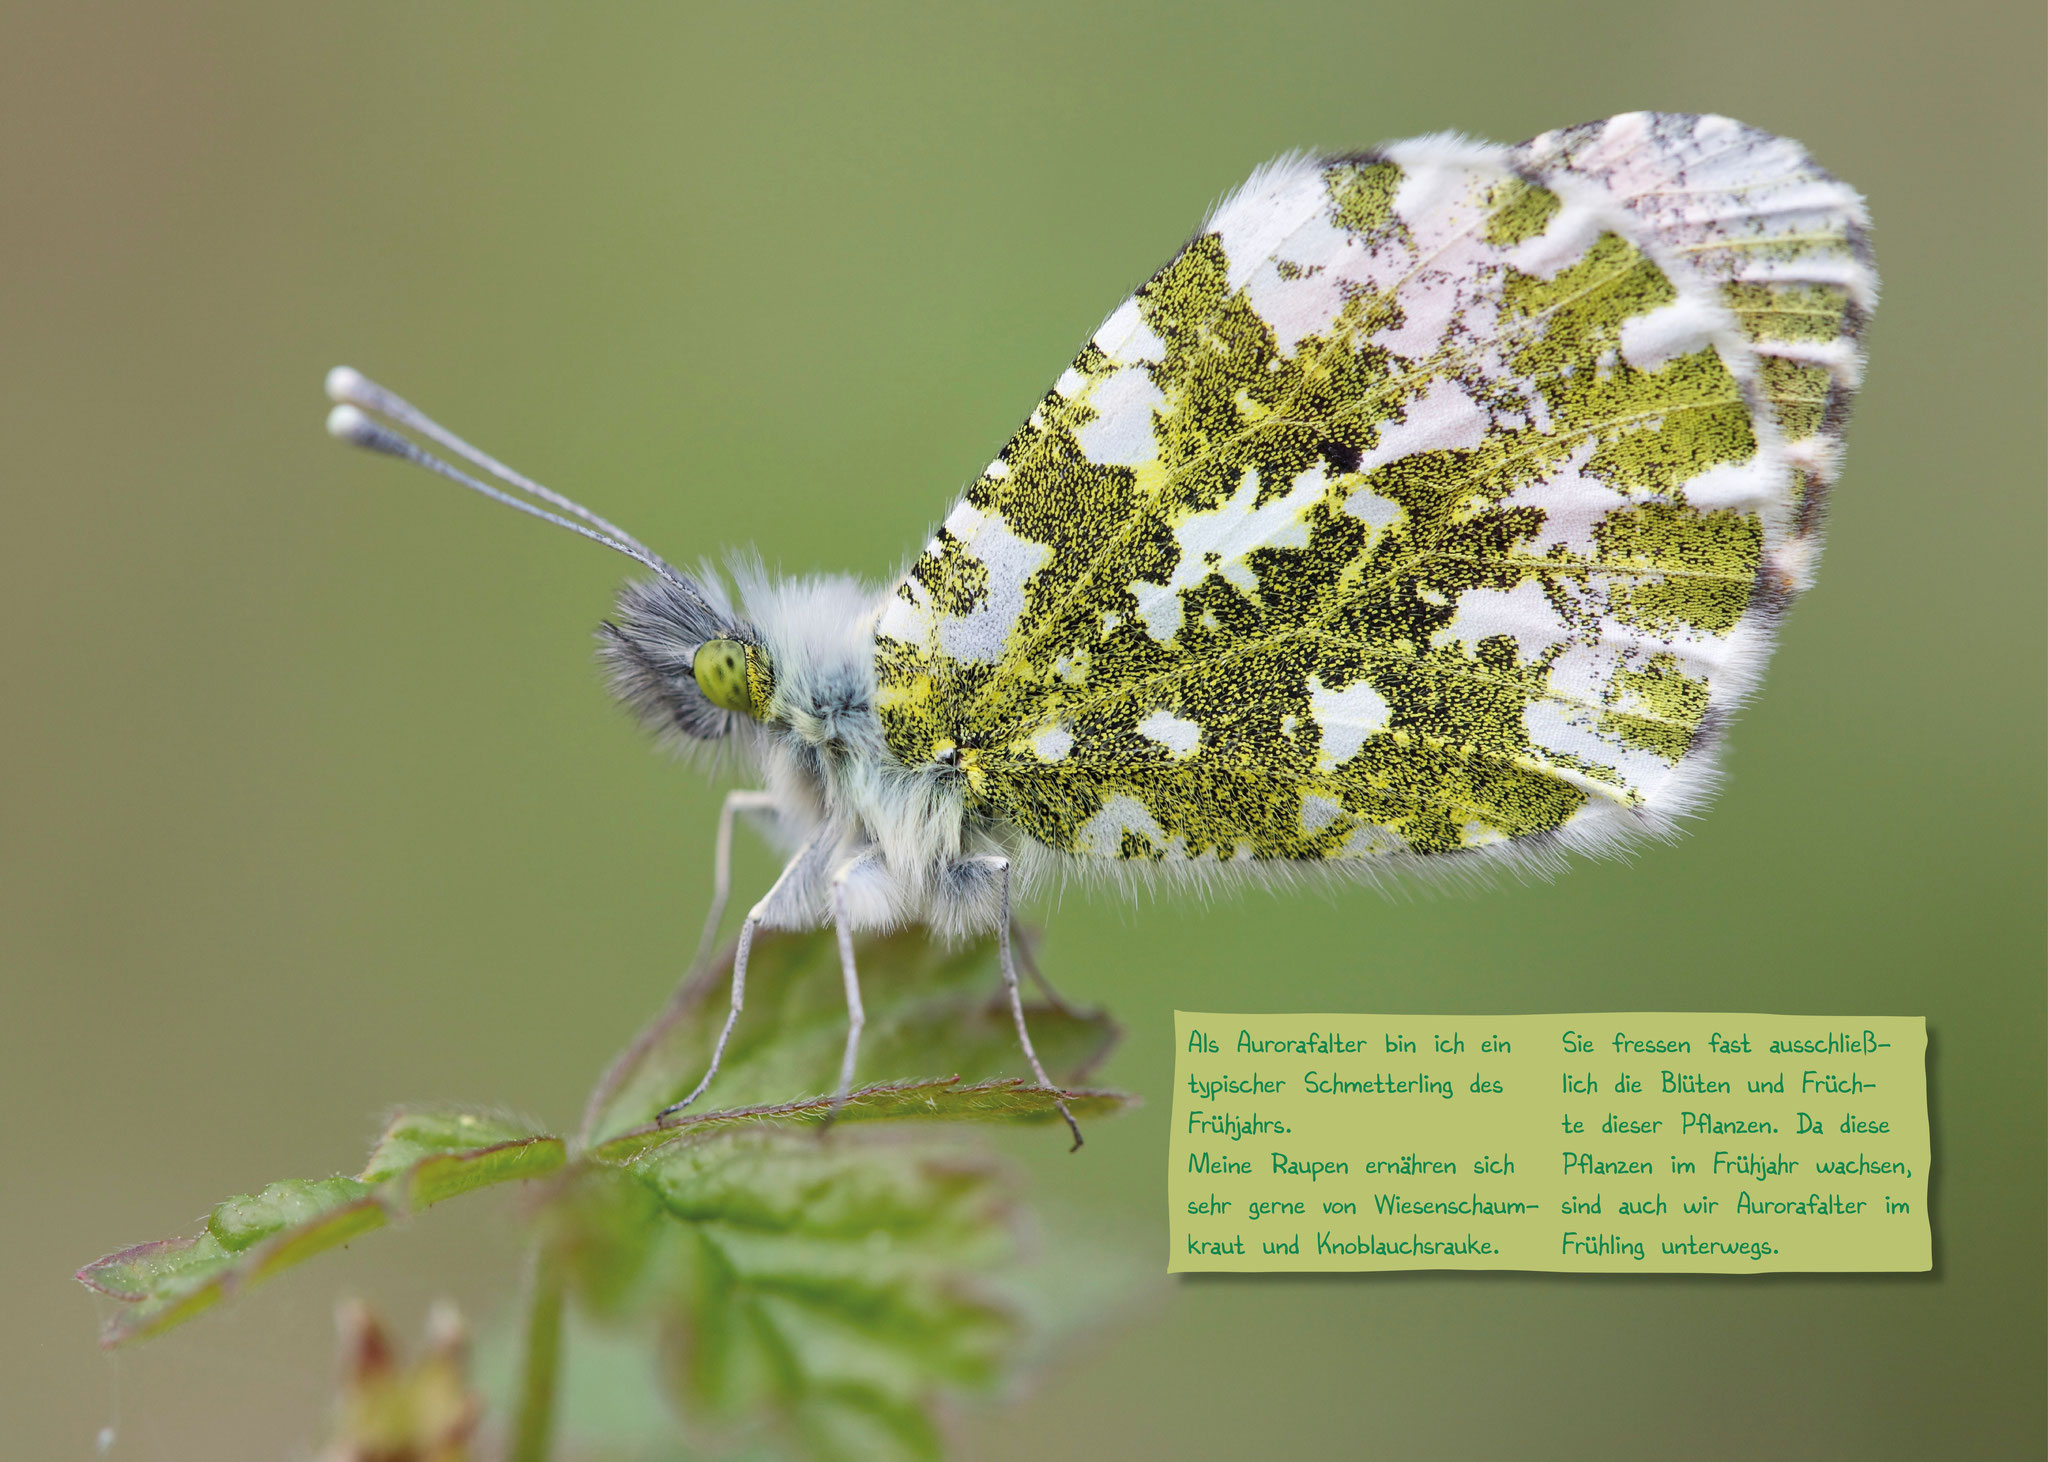 Als Aurorafalter bin ich ein
typischer Schmetterling des
Frühjahrs.
Meine Raupen ernähren sich
sehr gerne von Wiesenschaum-
kraut und Knoblauchsrauke.
Sie fressen fast ausschließ-
lich die Blüten und Früch-
te dieser Pflanzen. Da diese
Pflanzen im Frühjahr wachsen,
sind auch wir Aurorafalter im
Frühling unterwegs.